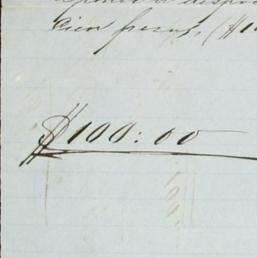 cien pesos, ($10
$100:00